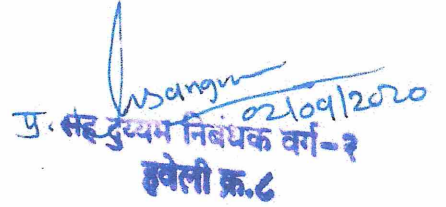 02/09/2020
प्र. सह दुय्यम निबंधक वर्ग-२
हवेली क्र.८